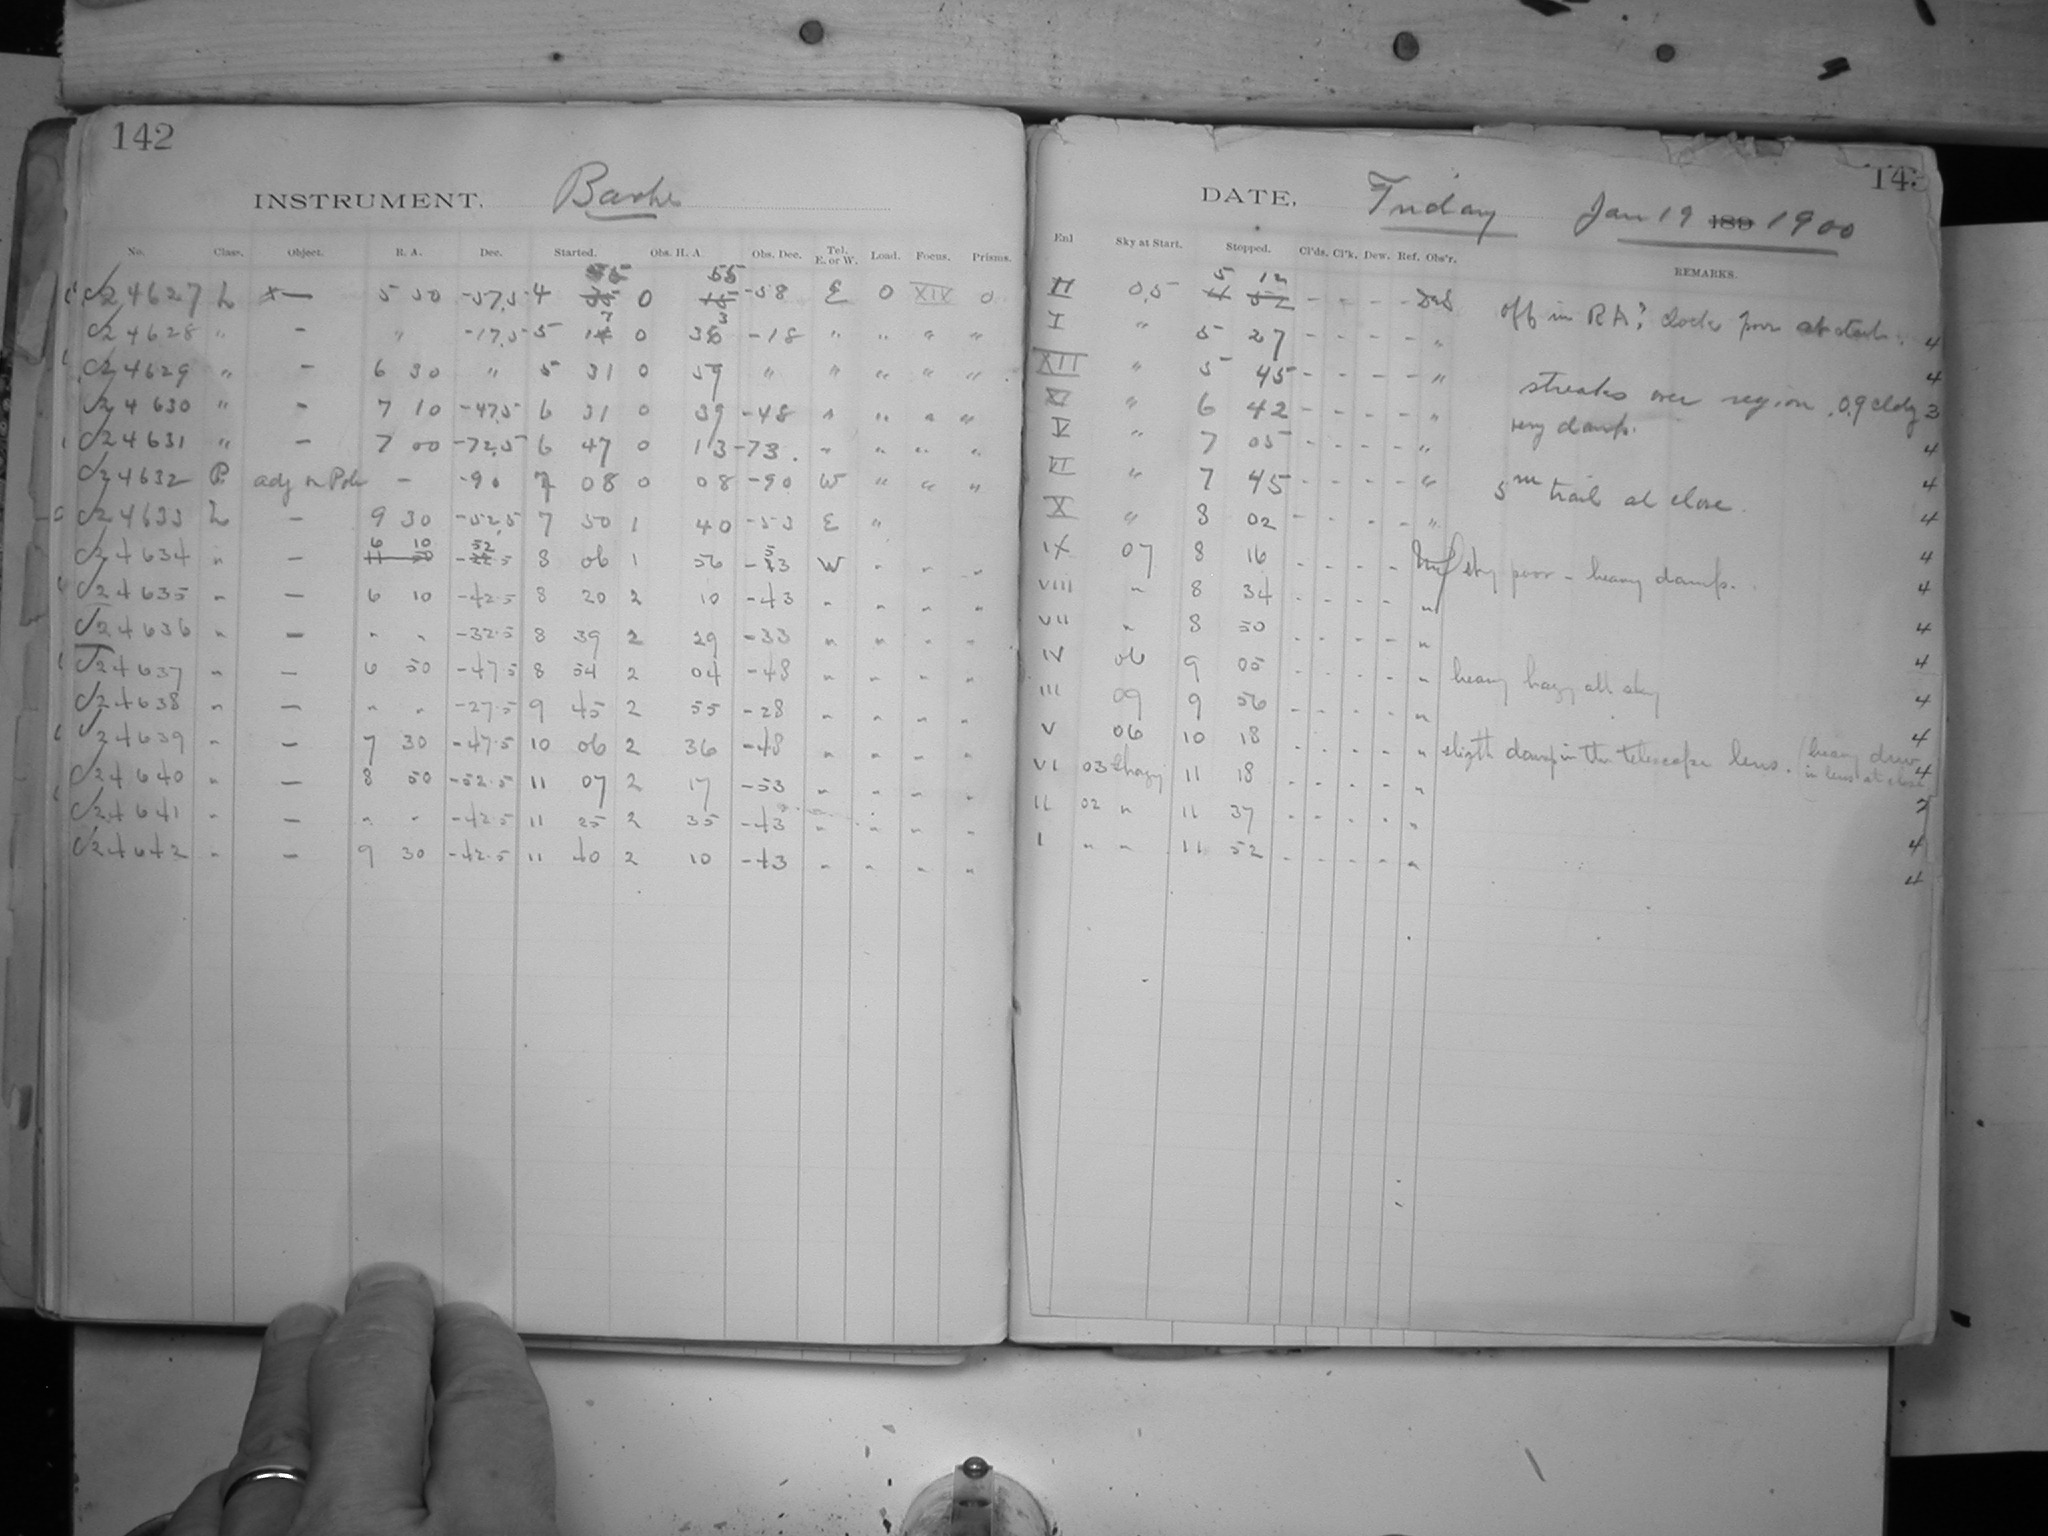 142
INSTRUMENT. Bache
No. Class. Object. R. A. Dec. Started. Obs. H. A Obs. Dec. Tel. E. or W. Load. Focus. Prisms.
24627 L — 5 50 -57.5 4 55 0 55 -58 E 0 XIV 0
24628 " - " -17.5 5 17 0 33 -18 " " " "
24629 " - 6 30 " 5 31 0 59 " " " " "
24630 " - 7 10 -47.5 6 31 0 39 -48 " " " "
24631 " - 7 00 -72.5 6 47 0 13 -73. " " " "
24632 P. adj on Pole - -90 7 08 0 08 -90 W " " "
24633 L - 9 30 -52.5 7 50 1 40 -53 E "
24634 " - 6 10 -52.5 8 06 1 56 -53 W " " "
24635 " - 6 10 -42.5 8 20 2 10 -43 " " " "
24636 " - " " -32.5 8 39 2 29 -33 " " " "
24637 " - 6 50 -47.5 8 54 2 04 -48 " " " "
24638 " - " " -27.5 9 45 2 55 -28 " " " "
24639 " - 7 30 -47.5 10 06 2 36 -48 " " " "
24640 " - 8 50 -52.5 11 07 2 17 -53 " " " "
24641 " - " " -42.5 11 25 2 35 -43 " " " "
24642 " - 9 30 -42.5 11 40 2 10 -43 " " " "
14
DATE. Friday Jan 19 189 1900
Enl Sky at Start. Stopped. Cl'ds. Cl'k. Dew. Ref. Obs'r. REMARKS.
II 0.5 5 12 - - - - off in RA? clock poor at start. 4
I " 5 27 - - - - " 4
XII " 5 45 - - - - " streaks over region. 0.9 cldy 3
XI " 6 42 - - - - " very damp. 4
V " 7 05 - - - - " 4
VI " 7 45 - - - - " 5m trail at close. 4
X " 8 02 - - - - " 4
IX 07 8 16 - - - - sky poor - heavy damp. 4
VIII " 8 34 - - - - " 4
VII " 8 50 - - - - " 4
IV 06 9 05 - - - - " heavy hazy all sky 4
III 09 9 56 - - - - " 4
V 06 10 18 - - - - " slight damp in the telescope lens. (heavy dew in lens at close 4
VI 03 hazy 11 18 - - - - "
II 02 " 11 37 - - - - " 4
I " " 11 52 - - - - " 4